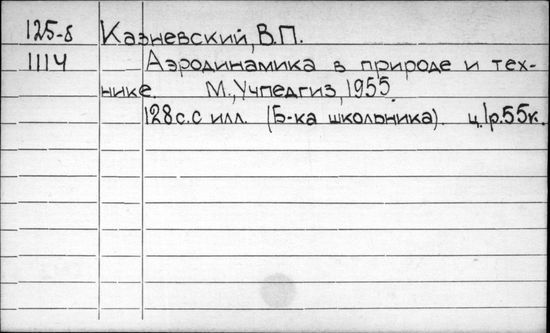 125-8 Казневский, В.П.
1114 Аэродинамика в природе и тех-
нике. М., Учпедгиз, 1955
128с. с илл. (Б-ка школьника). ц. 1р. 55к.